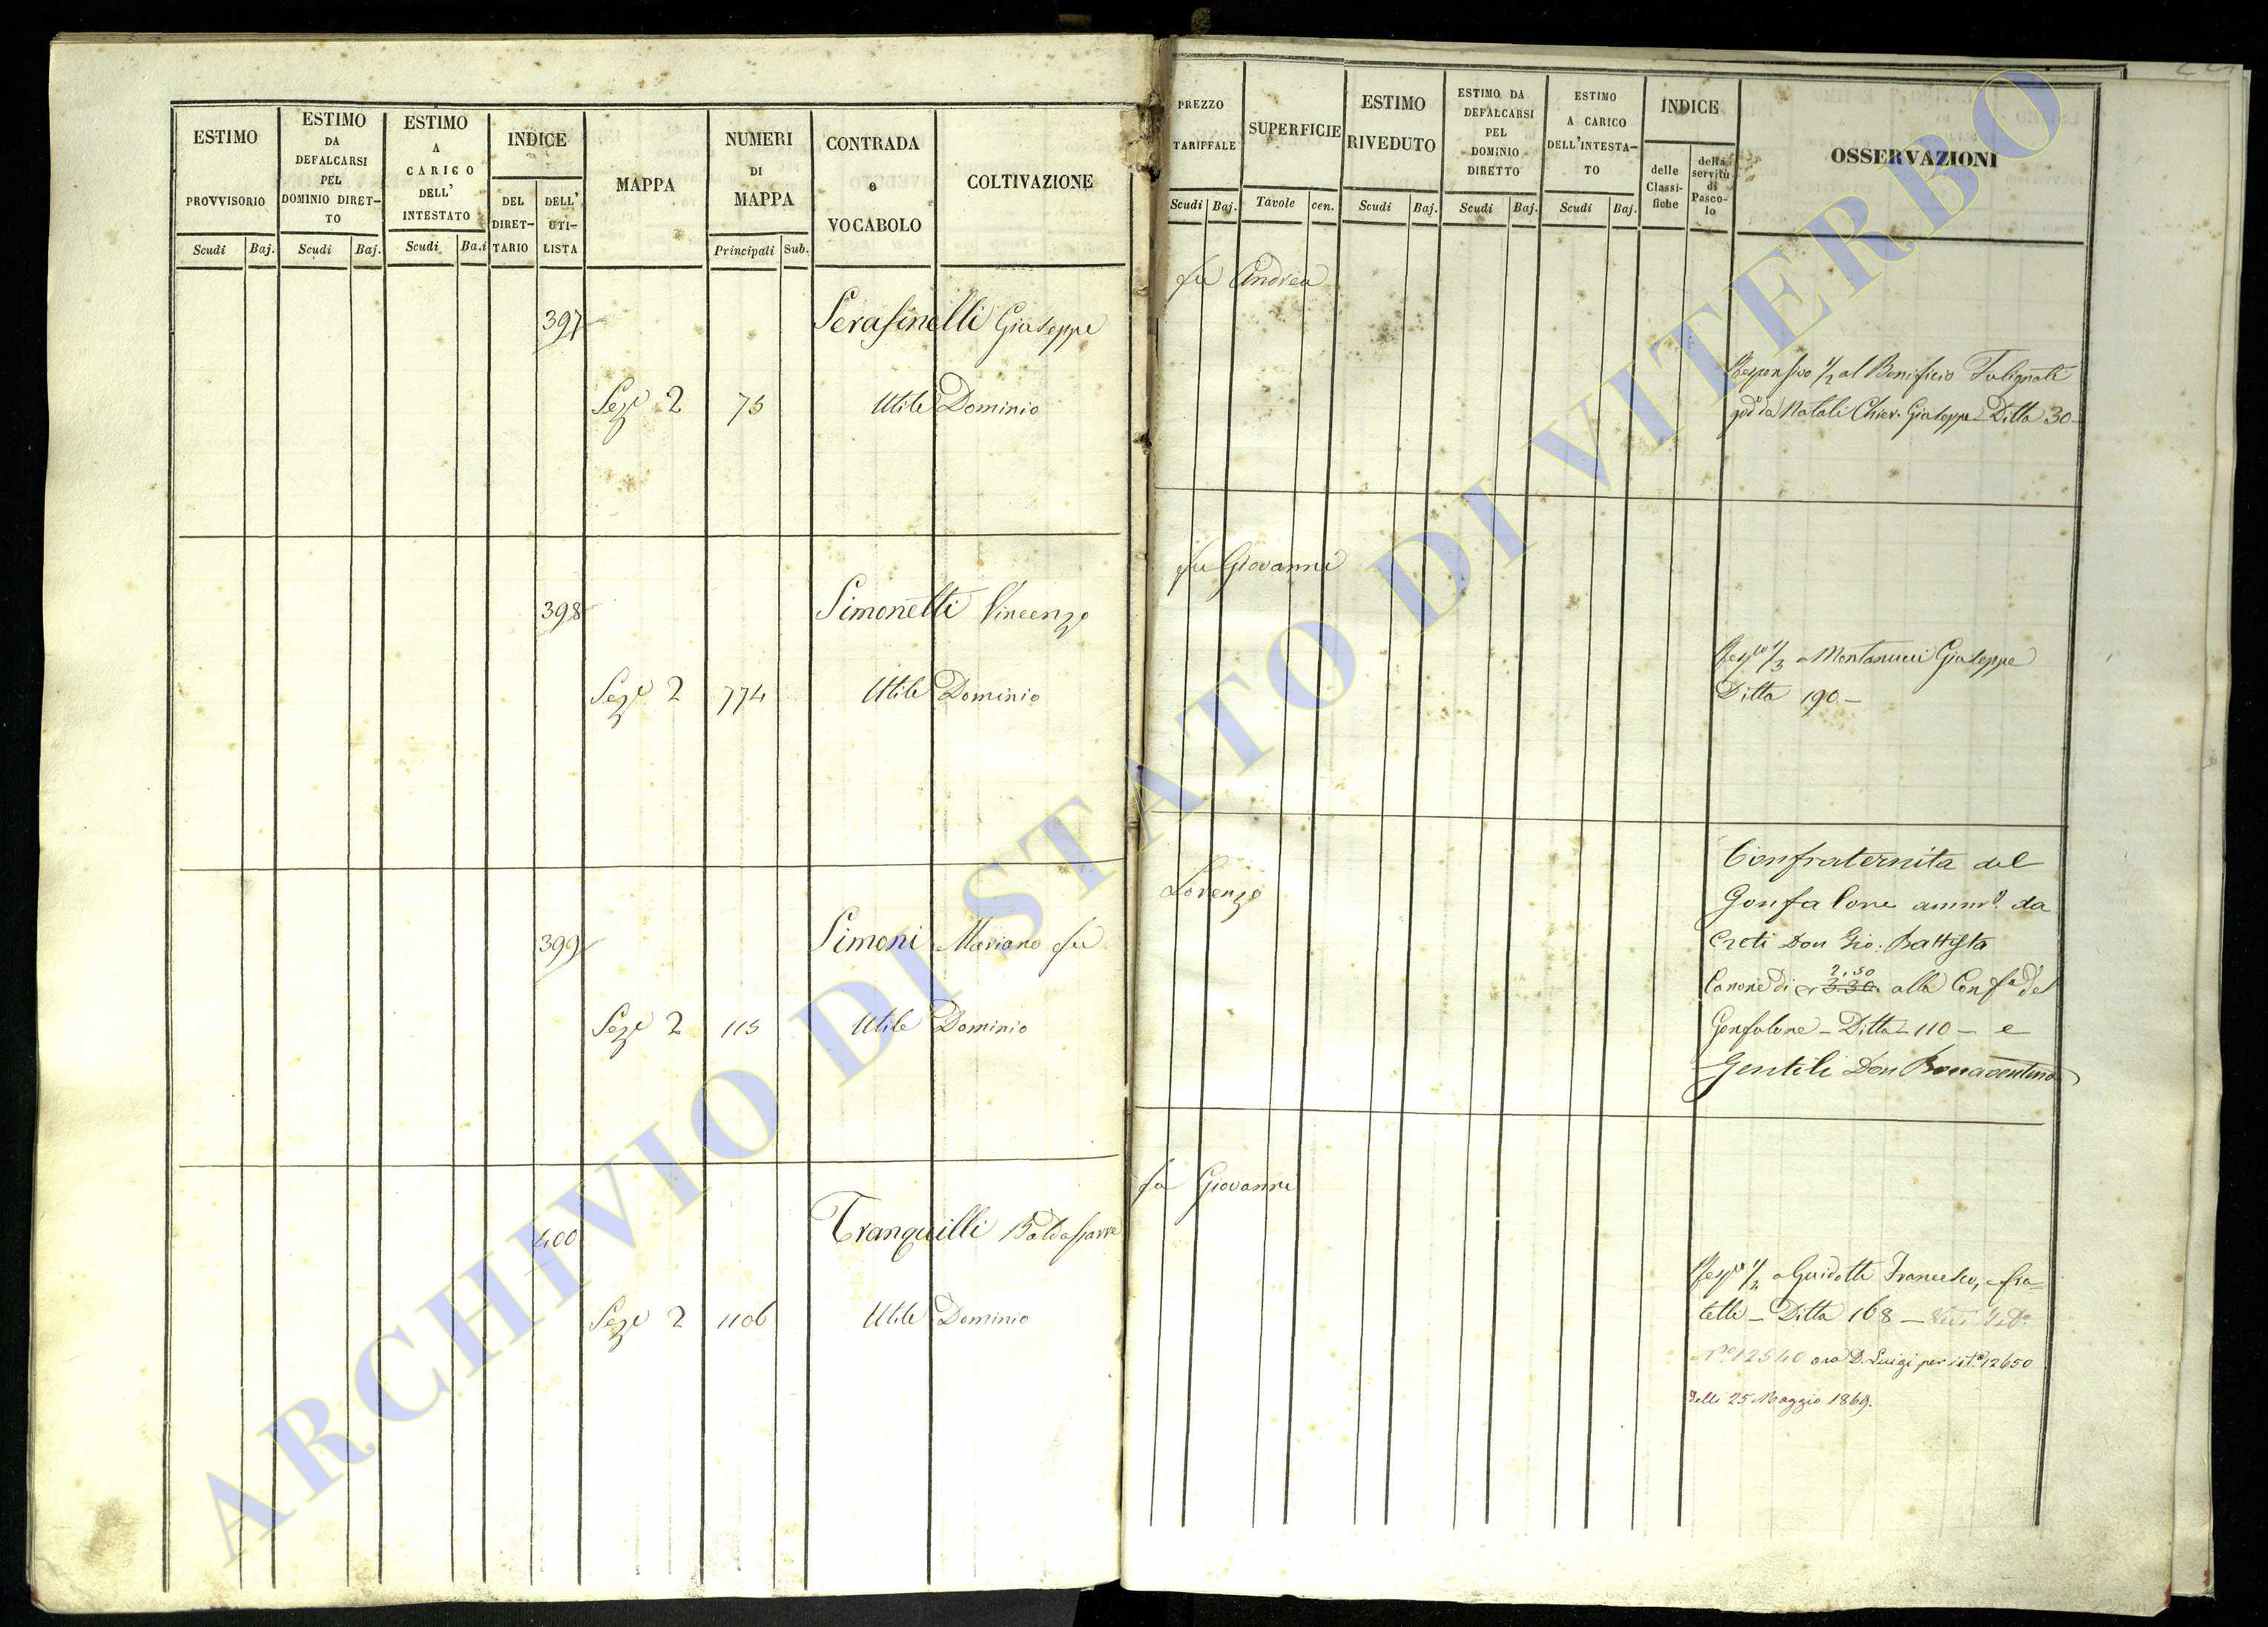 ESTIMO PROVVISORIO
ESTIMO DA DEFALCARSI PEL DOMINIO DIRET-TO
ESTIMO A CARICO DELL' INTESTATO
INDICE
DEL DIRET-TARIO
DELL' UTI-LISTA
MAPPA
NUMERI DI MAPPA
CONTRADA e VOCABOLO
COLTIVAZIONE
Scudi Baj. Scudi Baj. Scudi Ba.i Principali Sub.
PREZZO TARIFFALE
SUPERFICIE
ESTIMO RIVEDUTO
ESTIMO DA DEFALCARSI PEL DOMINIO DIRETTO
ESTIMO A CARICO DELL'INTESTA-TO
INDICE
delle Classi-fiche
della servitù di Pasco-lo
OSSERVAZIONI
Scudi Baj. Tavole cen. Scudi Baj. Scudi Baj. Scudi Baj.
397 Serafinelli Giuseppe fu Andrea
Sez.e 2 75 Utile Dominio
Responsivo 1/2 al Benificio
da Natali Chier. Giuseppe Ditta 30-
398 Simonetti Vincenzo fu Giovanni
Sez.e 2 774 Utile Dominio
1/3 a Montanucci Giuseppe
Ditta 190 -
399 Simoni Mariano fu Lorenzo
Sez.e 2 115 Utile Dominio
Confraternita del
Gonfalone amm.e da
Creti Don Gio: Battista
2,50
Canone di 3.30 alla Conf.a del
Gonfalone - Ditta - 110 - e
Gentili Don Bonaventura
400 Tranquilli Baldassarre fu Giovanni
Sez.e 2 1106 Utile Dominio
1/2 a Guidotti Francesco, e fra-
telli - Ditta 168 -
N.o 12540 ora D. Luigi per ist.a 12650
delli 25 Maggio 1869.
ARCHIVIO DI STATO DI VITERBO